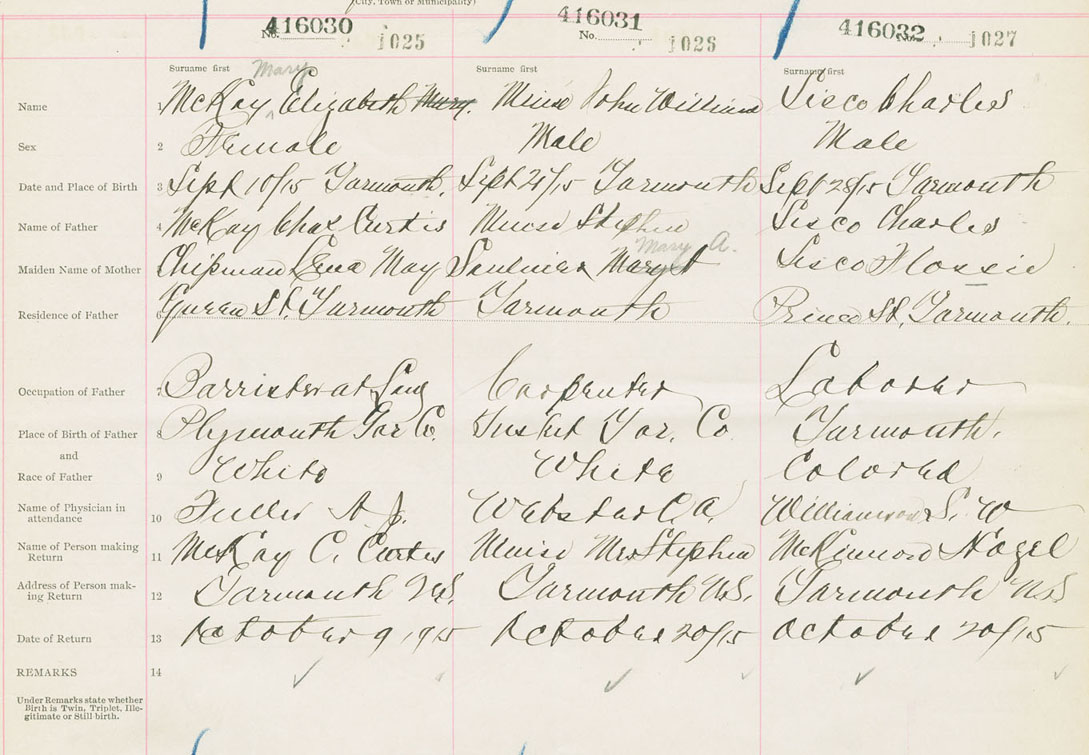 (City, Town or Municipality)
416030 416031 416032
No. 1025 No. 1026 No. 1027
Surname first Mary Surname first Surname first
Name 1 McKay Elizabeth Mary. Muise John William Sisco Charles
Sex 2 Female Male Male
Date and Place of Birth 3 Sept 10/15 Yarmouth. Sept 21/15 Yarmouth Sept 28/15 Yarmouth
Name of Father 4 McKay Chas Curtis Muise Stephen Sisco Charles
Mary A.
Maiden Name of Mother Chipman Lena May Saulnier Sisco Flossie
Residence of Father 6 Queen St. Yarmouth Yarmouth Prince St, Yarmouth.
Occupation of Father 7 Barrister at Law Carpenter Laborer
Place of Birth of Father 8 Plymouth Yar Co. Tusket Yar. Co Yarmouth.
and
Race of Father 9 White White Colored
Name of Physician in
attendance 10 Fuller A. J. Webster C. A. Williamson S. W
Name of Person making
Return 11 McKay C. Curtis Muise Mrs Stephen McKinnon Hazel
Address of Person mak-
ing Return 12 Yarmouth N.S. Yarmouth N.S. Yarmouth N.S.
Date of Return 13 October 9, 1915 October 20/15 October 20/15
REMARKS 14
Under Remarks state whether
Birth is Twin, Triplet, Ille-
gitimate or Still-birth.